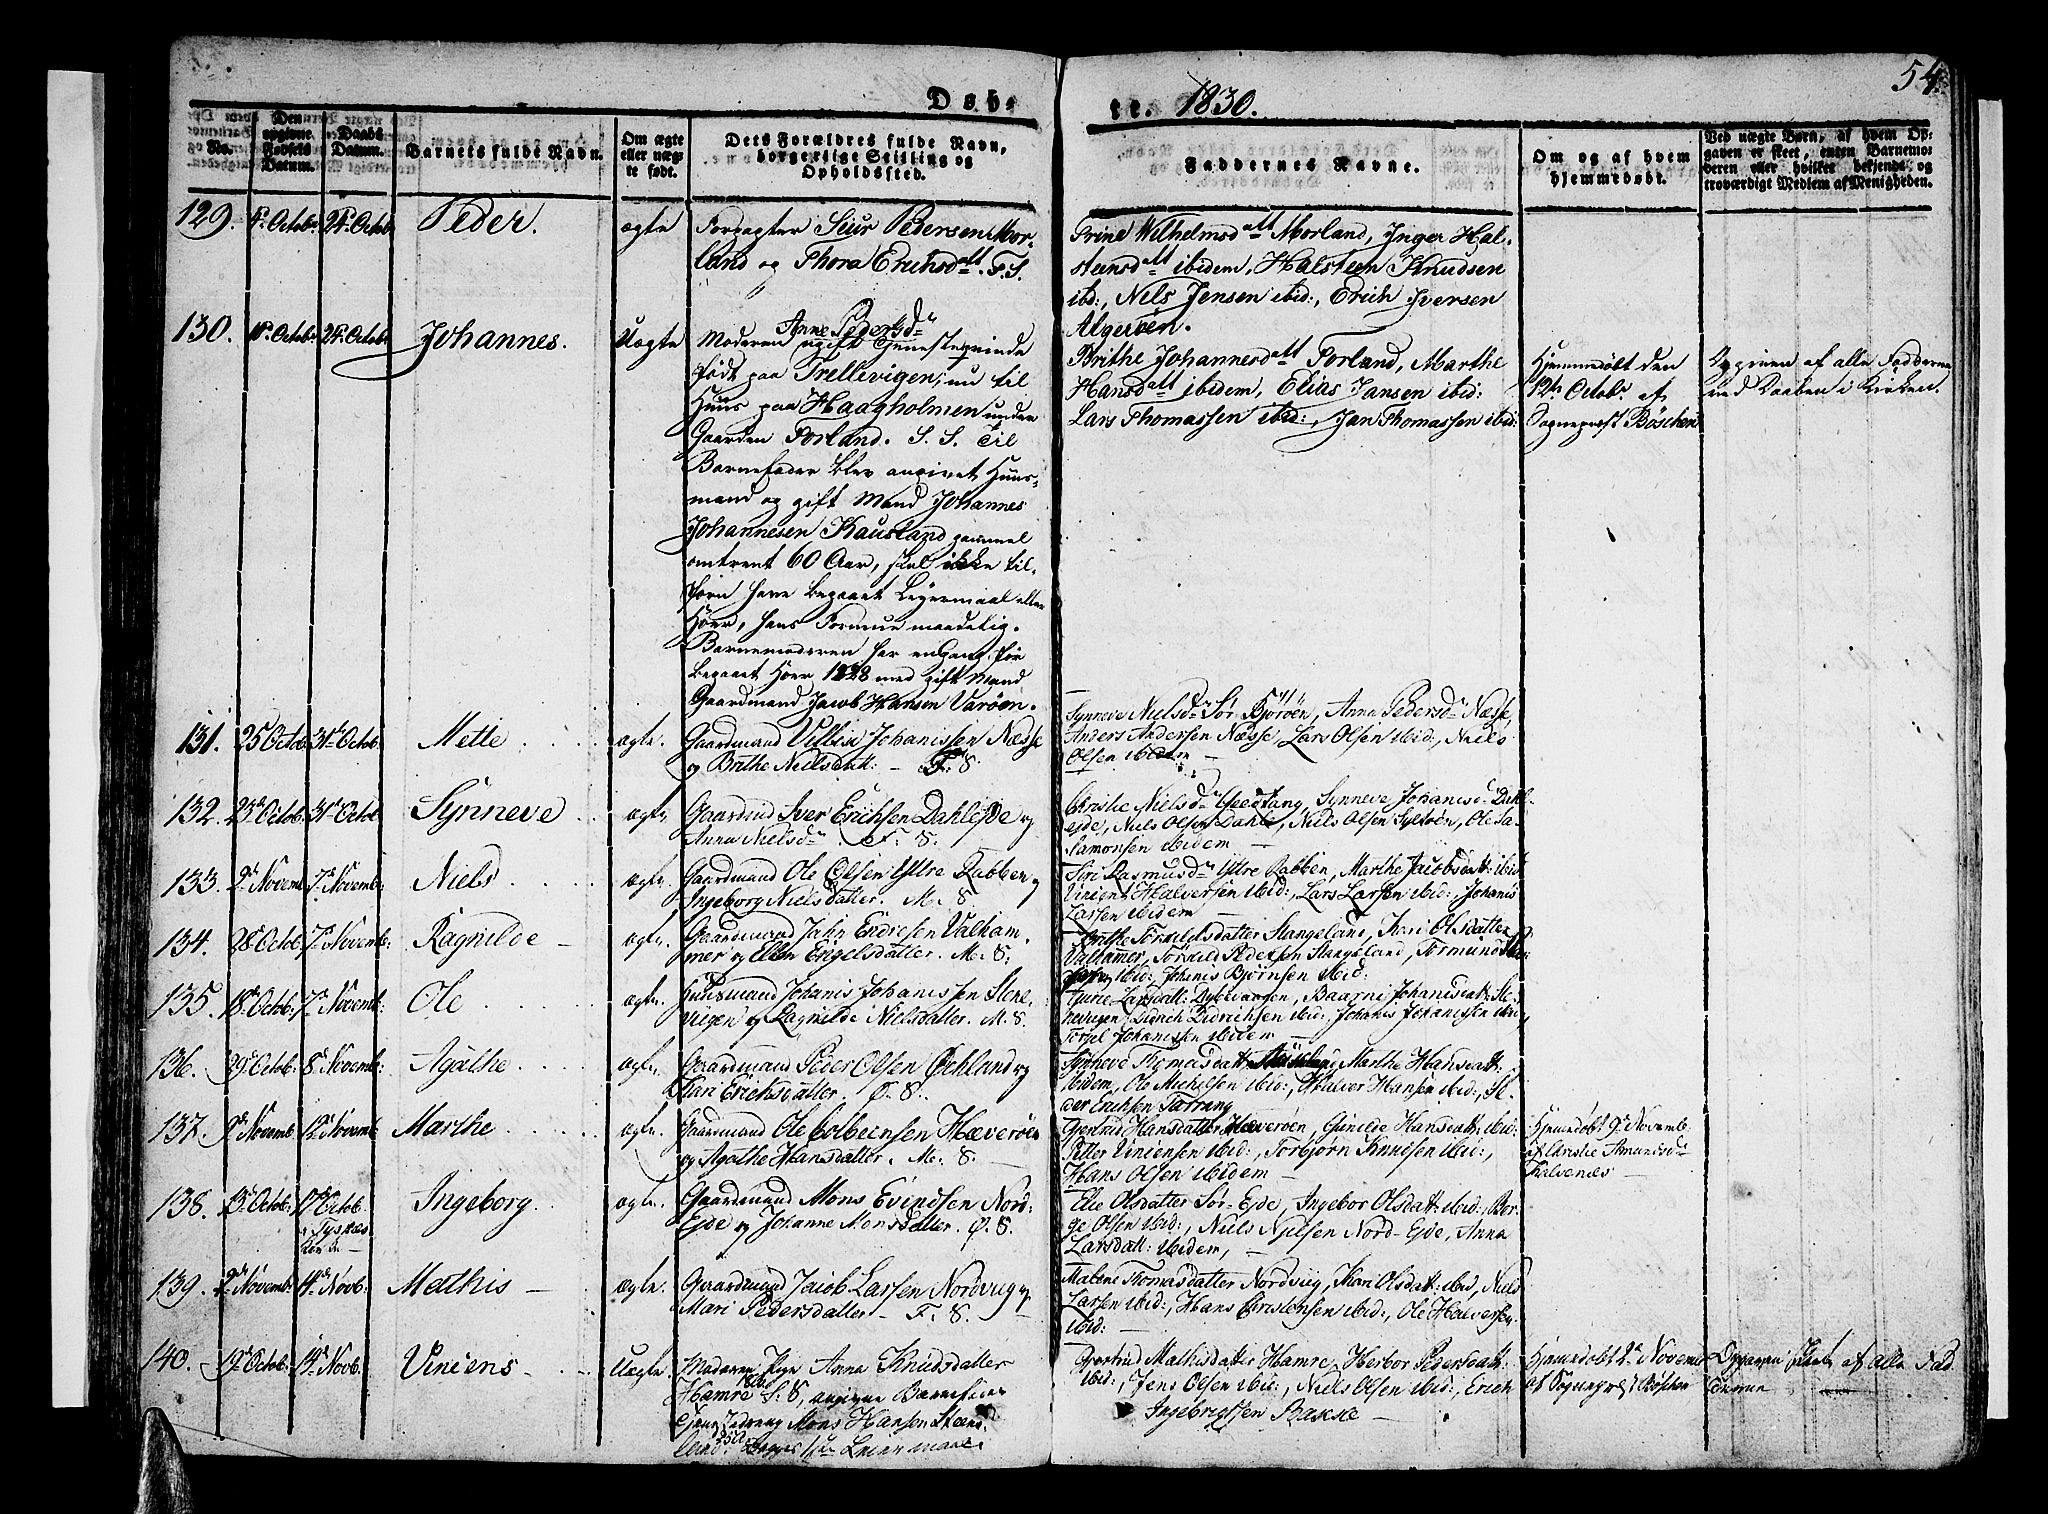 54.
Døb- te. 1830.
No.
Den opgivne Fødsels Datum.
Daabs Datum.
Barnets fulde Navn.
Om ægte eller uægte født.
Dets Forældres fulde Navn, borgerlige Stilling og Opholdssted.
Faddernes Navne.
Om og af hvem hjemmedøbt.
Ved uægte Børn, af hvem Opgaven er skeet, enten Barnemoderen eller hvilket bekjendt og troværdigt Medlem af Menigheden.
129. 4de Octobr. 24de Octob. Peder. ægte
Forpagter Siur Pedersen Mor-
land og Thora Erichsdatt. F. S.
Trine Wilhelmsdatt Morland, Inger Hal-
steensdatt ibidem, Halsteen Knudsen
ibd:, Niels Jensen ibid:, Erich Iversen
Algerøen.
130. Octobr 24de Octobr Johannes. Uægte
Anne Pedersd
Moderen ugift Tjenestepinde
født paa Trellevigen, nu til
Huus paa Haagholmen under
Gaarden Forland. S. S. Til
Barnefader blev angivet Huus-
mand og gift Mand Johannes
Johannesen Kausland gammel
omtrent 60 Aar, skal ikke til-
forn have begaaet Leiermaal eller
Hoer, hans Formue maadelig.
Barnemoderen har engang før
begaaet Hoer 1828 med gift Mand
Gaardmand Jacob Hansen Varøen.
Brithe Johannesdatt Forland, Marthe
Hansdatt ibidem, Elias Jansen ibid:
Lars Thomassen ibid:, Jan Thomassen ibid:
Hjemmedøbt den
12te Octobr. af
Sognepræst Büschen
Opgiven af alle Fadderne
ved Daaben i Kirken.
131. 25 Octob 31te Octob. Mette ægte.
Gaardmand Villum Johanissen Næsse
og Brithe Nielsdatt: F: S
Synneve Nielsd Sør Bjørøen, Anna Pedersd Næsse,
Anders Andersen Næsse, Lars Olsen ibid:, Niels
Olsen ibidem
132. 23de Octob. 31te Octob Synneve ægte
Iver Erichsen Dahleide og
Anna Nielsd F. S.
Christie Nielsd Tang, Synneve Johanisd Dahl-
eide, Niels Olsen Dahle, Niels Olsen Syltøen, Ole Sa-
lamonsen ibidem
133. 2de Novemb 7de Novemb: Niels ægte
Gaardmand Ole Olsen Yttre Dabben og
Ingeborg Nielsdatter. M. S
Siri Rasmusd Yttre Dabben, Marthe Jacobsdatt: ibid
Vinient Halversen ibid:, Lars Larsen ibid:, Johanis
Larsen ibidem
134. 28 Octob. 7de Novemb: Ragnilde ægte
Gaardmand Jahn Endresen Valham-
mer og Ellen Engelsdatter. M. S.
Brithe Torkelsdatter Stangeland, Kari Olsdatter
Valhamer, Torkild Pedersen Stangeland, Tormund
ibid:, Johanis Bjørnsen ibid:
135. 18de Octob: 7de Novemb: Ole ægte
Huusmand Johanis Johanissen Stene-
viigen og Ragnilde Nielsdatter. M. S.
Larsdatt: Dybevangen, Baarni Johanisdatt: Ste-
nevigen, Didrich Didrichsen ibid:, Johanis Johanissen ibid,
Johanissen ibidem
136. 29de Octob: 8de Novemb: Agathe ægte
Gaardmand Peder Olsen Øchland og
Kari Erichsdatter. Ø. S.
Synneve Thomasdatt Marthe Hansdatt:
ibidem, Ole Michelsen ibid:, Halver Hansen ibid:, Pe-
der Erichsen Tarrang
137. 9de Novemb 12te Novemb Marthe ægte
Gaardmand Ole Colbeensen Hæverøen
og Agathe Hansdatter. M. S.
Gjertrud Hansdatter Hæverøen, Gunilde Hansdatt: ibid:
Petter Vincensen ibid:, Torbjørn Knudsen ibid:,
Hans Olsen ibidem
Hjemmedøbt 9de Novemb:
af Christie Amundsd
Kalvenæs
138. 13de Octob: 17de Octob. i Tyskes- Kirke Ingeborg ægte.
Gaardmand Mons Evindsen Nord-
Eide og Johanne Monsdatter. Ø. S.
Elie Olsdatter Sør-Eyde, Ingebor Olsdatt: ibid:, Bør-
ge Olsen ibid:, Niels Nielsen Nord-Eyde, Anna
Larsdatt: ibidem,
139. 2de Novemb: 14de Novb: Mathis ægte.
Gaardmand Jacob Larsen Nordvig og
Mari Pedersdatter F. S
Malene Thomasdatter Nordviig, Kari Olsdatt: ibid, Niels
Larsen ibid:, Hans Christensen ibid:, Ole Halversen
ibid:
140. Octob: 14de Novb. Viniens Uægte.
Moderen Pige Anna Knudsdatter
Hamre S: S, angivne Barnefader
Mons Hansen Steens-
land
Gjertrud Mathisdatter Hamre, Herbor Pedersdatt:
ibid:, Jens Olsen ibid:, Niels Olsen ibid:, Erich
Ingebrigtsen Bakke
Hjemmedøbt 2de Novemb
af Sognepræst Büschen
Opgaven skeet af alle Fad-
derne